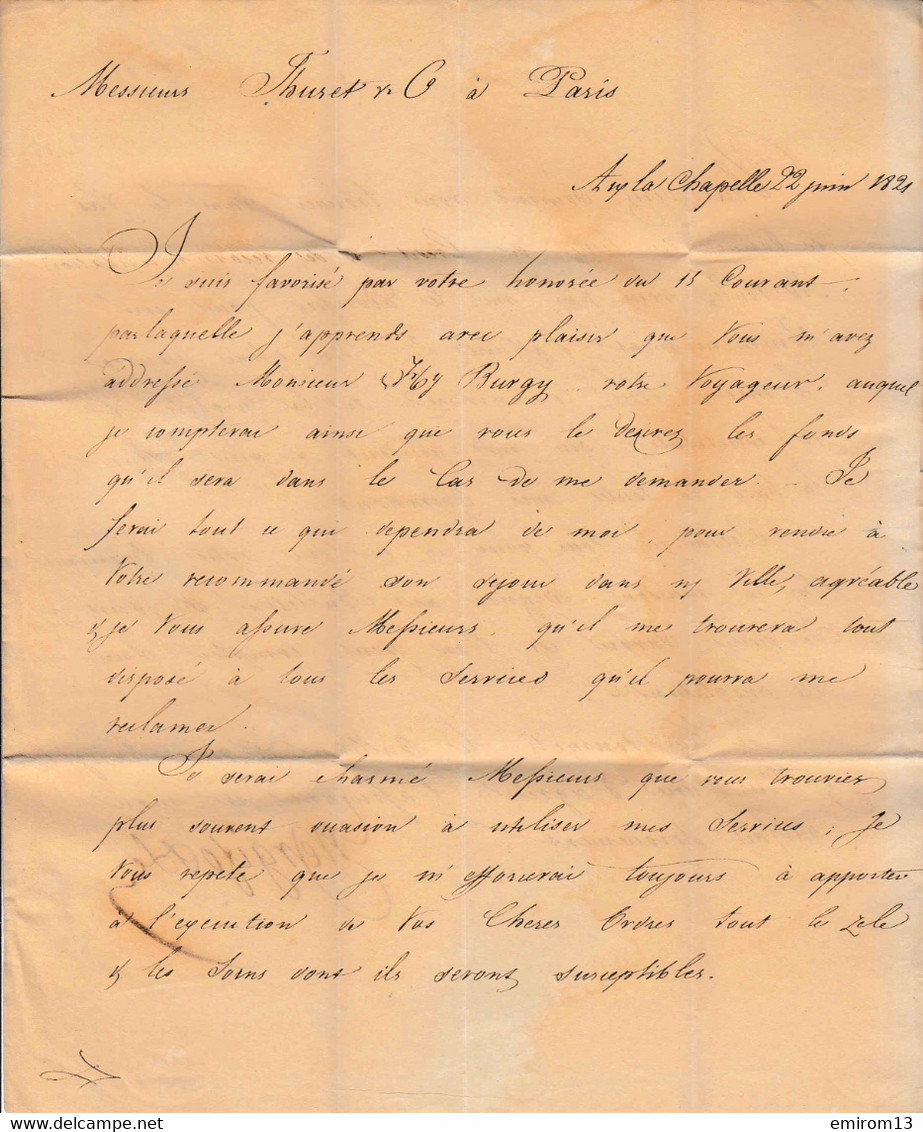 Messieurs Thuret & Co à Paris
Aix la Chapelle 22 juin 1821
Je suis favorisé par votre honorée du 15 Courant,
par laquelle j'apprends avec plaisir que Vous m'avez
addressé Monsieur Hy Burgy, votre Voyageur, auquel
je compterai ainsi que vous le desirez les fonds
qu'il sera dans le Cas de me demander. - Je
ferai tout ce qui dependra de moi, pour rendre à
Votre recommandé son sejour dans n/ Ville, agréable
& je Vous assure Messieurs, qu'il me trouvera tout
disposé à tous les Services qu'il pourra me
reclamer.
Je serai charmé Messieurs que vous trouviez
plus souvent occasion à utiliser mes Services; Je
Vous repete que je m'efforcerai toujours à apporter
à l'execution de Vos Cheres Ordres tout le zele
& les Soins dont ils seront susceptibles.
delcampe.net
emirom13